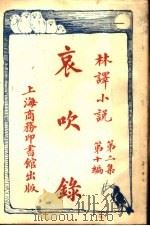 林譯小説
第二集
第十編
哀吹錄
上海商務印書館出版